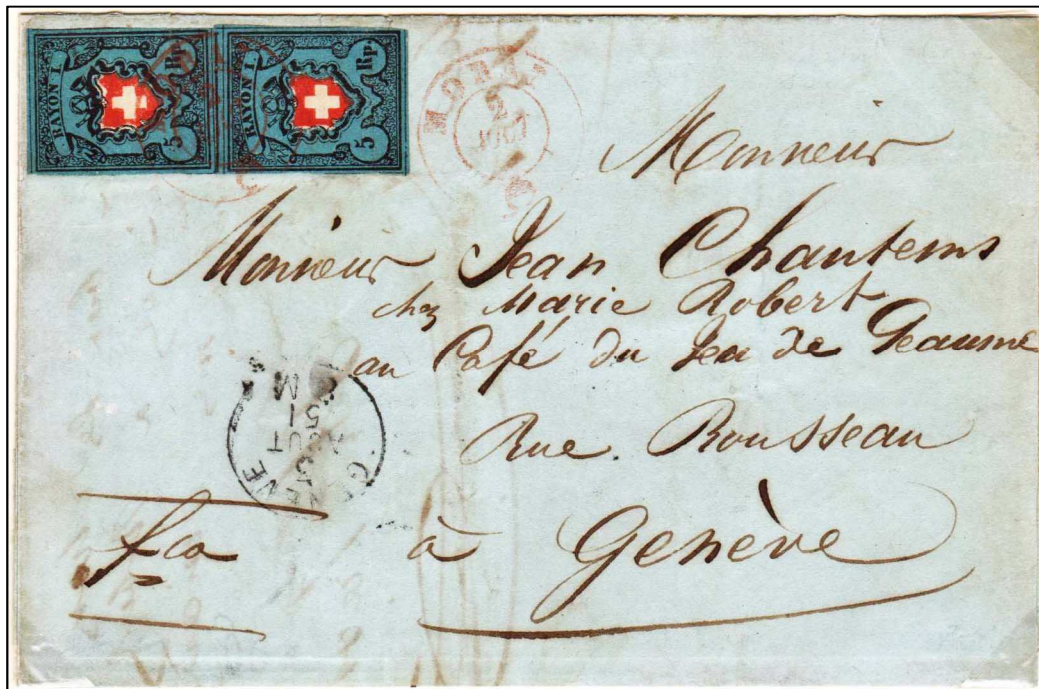 RAYON I.
5 Rp.
RAYON I.
5 Rp.
2
AOUT
Monsieur
Monsieur Jean Chantems
chez Marie Robert
au Café du Jeu de Peaume
Rue. Rousseau
GENEVE
3
AOUT
51
M
fco à Genève